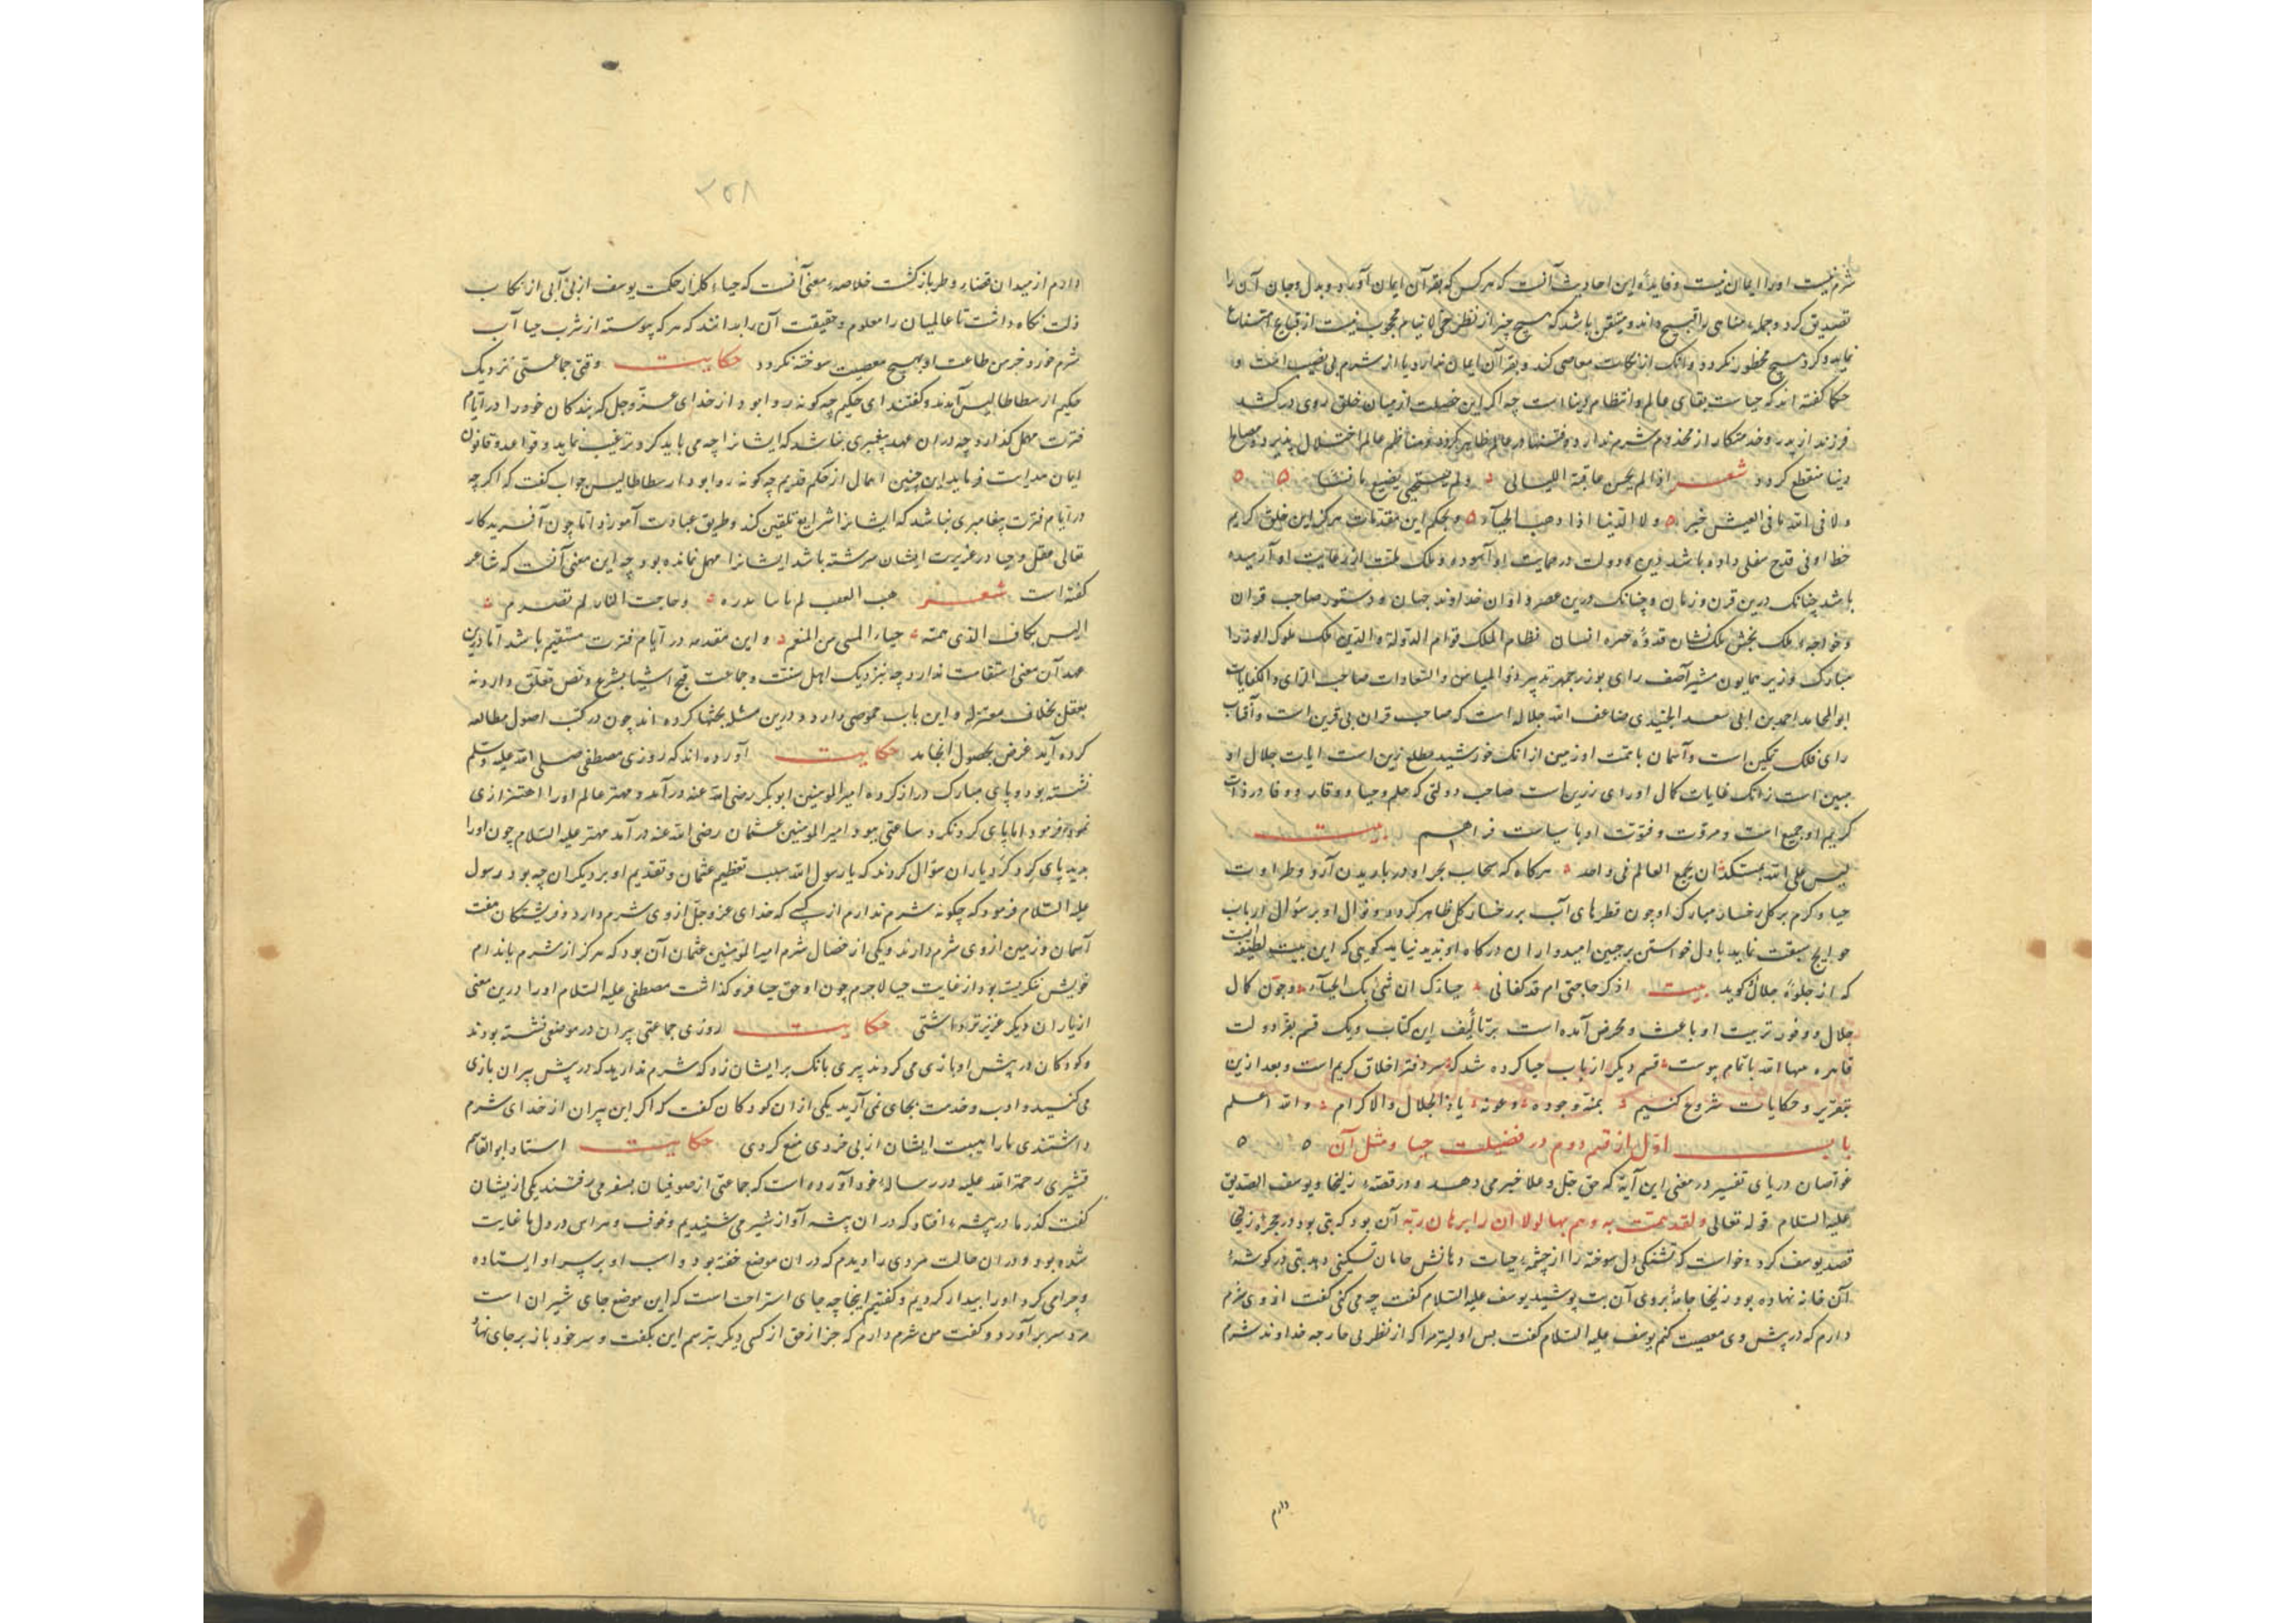 شرم نیست او را ایمان نیست و فایدهٔ این احادیث آنست که هرکس که بقرآن ایمان آورد و بدل و جان آن را
تصدیق کرد و جمله مناهی را قبیح داند و متیقن باشد که هیچ چیز از نظر حی لا ینام محجوب نیست از قبایح امتناع
نماید و کرد هیچ محظور نکردد و آنک از نکات معاصی کند و بقرآن ایمان ندارد یا از شرم بی نصیب است و
حکما کفته اند که حیاست بقای عالم و انتظام دنیا است چه اکر این خصلت از میان خلق روی درکشد
فرزند از پدر و خدمتکار از مخدوم شرم ندارد و فتنها در عالم ظاهر کردد و مناظم عالم اختلال پذیرد و مصالح
دنیا منقطع کردد شعر اذا لم یخش عاقبة اللیالی ولم یستحیی یصنع ما یشا
ولا فی الله ما فی العیش خیر ولا الدنیا اذا ذهب الحیآء و بحکم این مقدمات هرکز این خلق کریم
حظ اوفی قدح معلی داده باشد دین و دولت در حمایت او آسوده و ملک ملت از رعایت او آرمیده
باشد چنانک درین قرن و زمان و چنانک درین عصر و اوان خداوند جهان و دستور صاحب قران
و خواجهٔ ملک بخش ملک نشان قدوهٔ انسان نظام الملک قوام الدولة والدین ملک ملوک الوزرا
مبارک وزیر همایون مشیر آصف رای بوزرجمهر تدبیر ذو المیامن والسعادات صاحب الرای والکفایات
ابو المحامد احمد بن ابی سعد الجنیدی ضاعف الله جلاله است که صاحب قران بی قرین است و آفتاب
رای فلک تمکین است و آسمان با همت او زمین از انک خورشید مطلع زین است ایات جلال او
مبین است زانک غایات کمال او رای زرین است صاحب دولتی که حلم و حیا و وقار و وفا در ذات
کریم او جمع است و مروّت و فتوّت او با سیاست فراهم بیت
لیس علی الله بمستنکر ان یجمع العالم فی واحد هرکاه که سحاب بحر او در باریدن آرد و طراوت
حیا و کرم بر کل رخسار مبارک او چون قطرهای آب بر رخسار کل ظاهر کردد و نوال او بر سؤال ارباب
حوایج سبقت نماید با دل خواستن بر جبین امیدواران درکاه او پدید نیاید کویئی که این بیت لطیفست
که از جلوهٔ جلال کوید بیت اذکر حاجتی ام قد کفانی حیاؤک ان شیمتک الحیآء و چون کمال
جلال و وفور تربیت او باعث و محرض آمده است بر تألیف این کتاب و یک قسم بفرّ دولت
قاهره مهما الله باتمام پیوست قسم دیکر از باب حیا کرده شد که سر دفتر اخلاق کریم است و بعد ازین
بتقریر و حکایات شروع کنیم بمنه وجوده وعونه یا ذا الجلال والاکرام والله اعلم
باب اوّل از قسم دوم در فضیلت حیا و مثل آن
غواصان دریای تفسیر در معنی این آیه که حق جل و علا خبر می دهد و در قصّهٔ زلیخا و یوسف الصدیق
علیه السلام قوله تعالی ولقد همت به وهم بها لولا ان را برهان ربه آن بود که بتی بود در حجرهٔ زلیخا
قصد یوسف کرد و خواست که تشنکی دل سوخته را از چشمهٔ حیات دهانش جانان تسکینی دهد بتی در کوشهٔ
آن خانه نهاده بود زلیخا جامهٔ بروی آن بت پوشید یوسف علیه السلام کفت چه می کنی کفت از وی شرم
دارم که در پیش وی معصیت کنم یوسف علیه السلام کفت بس اولیتر مرا که از نظر بی خارجه خداوند شرم
دارم
۳۵۸
دارم از میدان قضاء وطر بازکشت خلاصهٔ معنی آنست که حیاء کلزار حکمت یوسف از بی آبی ارتکاب
ذلت نکاه داشت تا عالمیان را معلوم و حقیقت آن را بدانند که هرکه پیوسته از شرب حیا آب
شرم خورد خرمن طاعت او بهیچ معصیت سوخته نکردد حکایت وقتی جماعتی نزدیک
حکیم ارسطاطالیس آمدند و کفتند ای حکیم چه کونه روا بود از خدای عزّ و جل که بندکان خود را در ایام
فترت مهمل کذارد چه در ان عهد پیغمبری نباشد که ایشانرا چه می باید کرد ترغیب نماید و قواعد و قانون
ایمان هدایت فرماید این چنین اهمال از حکم قدیم چه کونه روا بود ارسطاطالیس جواب کفت که اکرچه
در ایام فترت پیغامبری نباشد که ایشانرا شرایع تلقین کند و طریق عبادت آموزد اما چون آفریدکار
تعالی عقل و حیا در غریزت ایشان سرشته باشد ایشانرا مهمل نمانده بود چه این معنی آنست که شاعر
کفته است شعر هب البعث لم یاتنا نذره وجاحمة النار لم تضرم
الیس بکاف الذی همته حیاء المسی من المنعم و این مقدمه در ایام فترت مستقیم باشد اما درین
عهد آن معنی استقامت ندارد چه بنزدیک اهل سنّت و جماعت قبح اشیا بشرع و نص تعلق دارد نه
بعقل بخلاف معتزله و این باب غموضی دارد و درین مسئله بحثها کرده اند چون در کتب اصول مطالعه
کرده آید غرض بحصول انجامد حکایت آورده اند که روزی مصطفی صلی الله علیه وسلم
نشسته بود و پای مبارک دراز کرده امیر المومنین ابو بکر رضی الله عنه درآمد و مهتر عالم او را اهتزازی
نمود و فرمود اما پای کرد نکرد ساعتی ببود امیر المومنین عثمان رضی الله عنه درآمد مهتر علیه السلام چون او را
بدید پای کرد کرد یاران سؤال کردند که یا رسول الله سبب تعظیم عثمان و تقدیم او بر دیکران چه بود رسول
علیه السلام فرمود که چکونه شرم ندارم از کسی که خدای عز و جل از وی شرم دارد و فرشتکان هفت
آسمان و زمین از وی شرم دارند و یکی از خصال شرم امیر المومنین عثمان آن بود که هرکز از شرم باندام
خویش نکریسته بود از غایت حیا لاجرم چون او حق حیا فرو نکذاشت مصطفی علیه السلام او را درین معنی
از یاران دیکر عزیزتر داشتی حکایت روزی جماعتی پیران در موضعی نشسته بودند
و کودکان در پیش او بازی می کردند پیری بانک بر ایشان زد که شرم ندارید که در پیش پیران بازی
می کنید و ادب و خدمت بجای نمی آرید یکی از ان کودکان کفت که اکر این پیران از خدای شرم
داشتندی ما را هیبت ایشان از بی خردی منع کردی حکایت استاد ابو القاسم
قشیری رحمة الله علیه در رسالهٔ خود آورده است که جماعتی از صوفیان بسفر می رفتند یکی ازیشان
کفت کذر ما در بیشهٔ افتاد که در ان بیشه آواز شیر می شنیدیم و خوف و هراس در دل ما غایت
شده بود و در ان حالت مردی را دیدم که در ان موضع خفته بود و اسب او بر سر او ایستاده
و چرا می کرد او را بیدار کردیم و کفتیم اینجا چه جای استراحت است که این موضع جای شیران است
مرد سر برآورد و کفت من شرم دارم که جز از حق از کسی دیکر بترسم این بکفت و سر خود باز بر جای نهاد